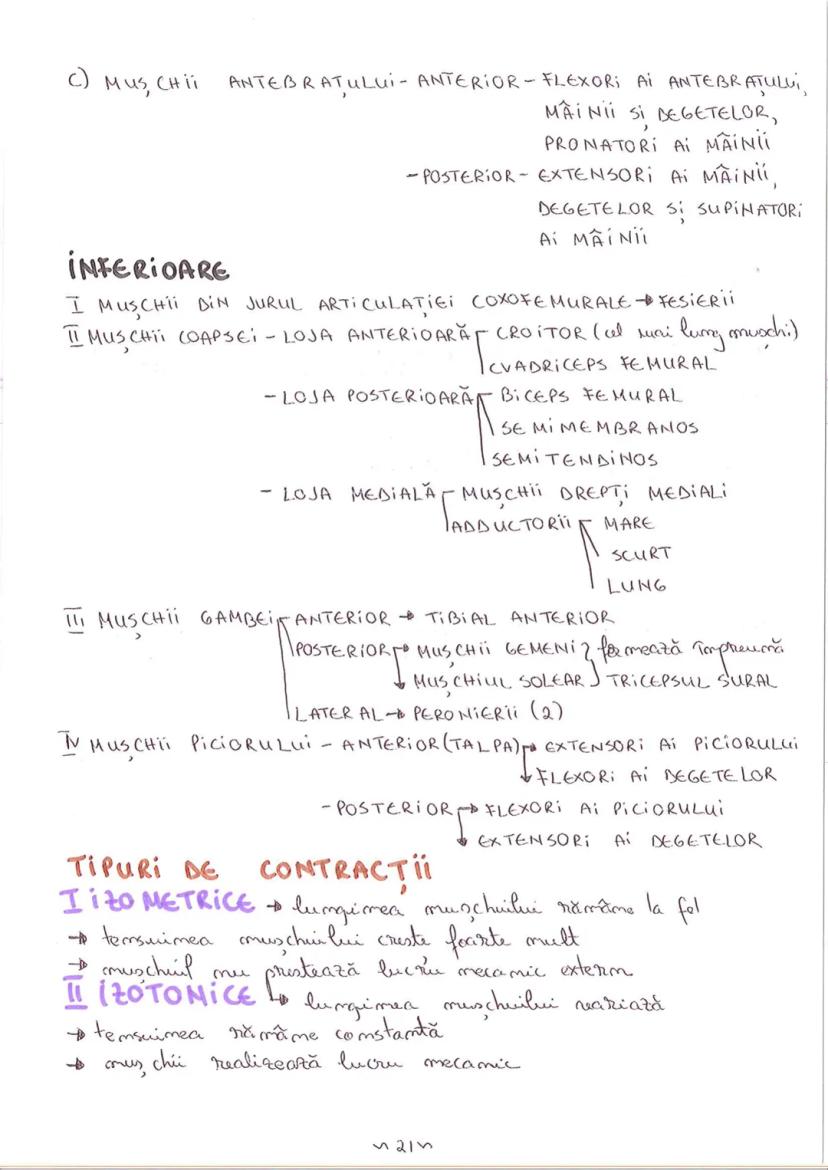 C) MUȘCHII ANTEBRAȚULUI - ANTERIOR - FLEXORI AI ANTEBRAȚULUI,
MÂINII ȘI DEGETELOR,
PRONATORI AI MÂINII
- POSTERIOR - EXTENSORI AI MÂINII,
DEGETELOR ȘI SUPINATORI
AI MÂINII
INFERIOARE
I MUȘCHII DIN JURUL ARTICULAȚIEI COXOFEMURALE → FESIERII
II MUȘCHII COAPSEI - LOJA ANTERIOARĂ CROITOR (cel mai lung mușchi)
CVADRICEPS FEMURAL
- LOJA POSTERIOARĂ BICEPS FEMURAL
SEMIMEMBRANOS
SEMITENDINOS
- LOJA MEDIALĂ MUȘCHII DREPȚI MEDIALI
ADDUCTORII MARE
SCURT
LUNG
III MUȘCHII GAMBEI ANTERIOR → TIBIAL ANTERIOR
POSTERIOR → MUȘCHII GEMENI } formează împreună
→ MUȘCHIUL SOLEAR } TRICEPSUL SURAL
LATERAL → PERONIERII (2)
IV MUȘCHII PICIORULUI - ANTERIOR (TALPA) → EXTENSORI AI PICIORULUI
→ FLEXORI AI DEGETELOR
- POSTERIOR → FLEXORI AI PICIORULUI
→ EXTENSORI AI DEGETELOR
TIPURI DE CONTRACȚII
I IZOMETRICE → lungimea mușchiului rămâne la fel
→ tensiunea mușchiului crește foarte mult
→ mușchiul nu prestează lucru mecanic extern
II IZOTONICE → lungimea mușchiului variază
→ tensiunea rămâne constantă
→ mușchii realizează lucru mecanic
~ 21 ~